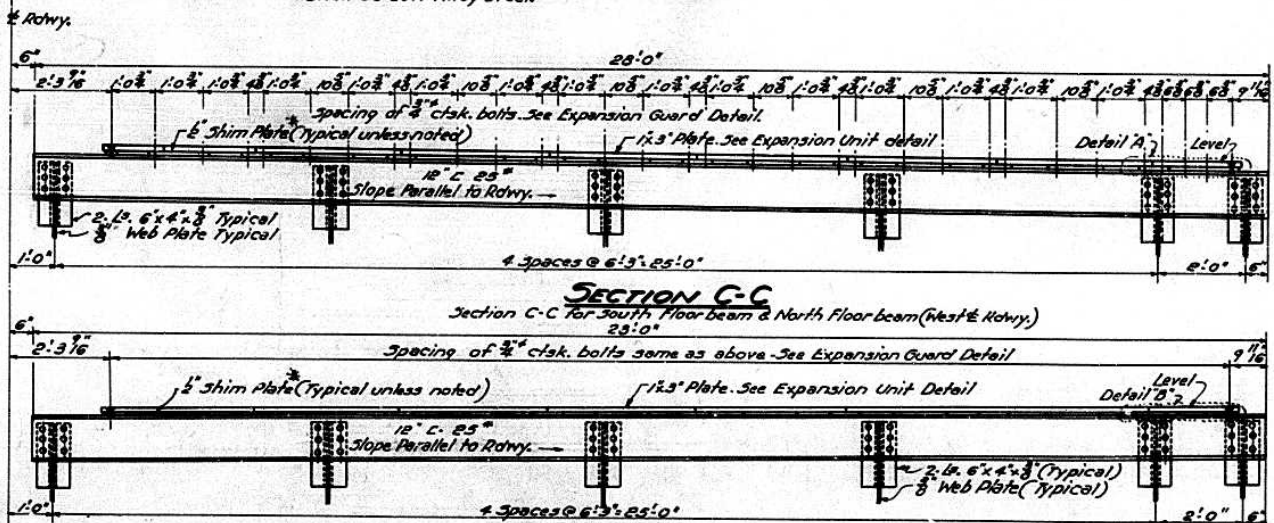 ℄ Rdwy.
6"
28'-0"
2'-3 9/16" 1'-0 3/4" 1'-0 3/4" 1'-0 3/4" 4 5/8" 1'-0 3/4" 10 5/8" 1'-0 3/4" 4 5/8" 1'-0 3/4" 10 5/8" 1'-0 3/4" 4 5/8" 1'-0 3/4" 10 5/8" 1'-0 3/4" 4 5/8" 1'-0 3/4" 10 5/8" 1'-0 3/4" 4 5/8" 1'-0 3/4" 10 5/8" 1'-0 3/4" 4 5/8" 1'-0 3/4" 10 5/8" 1'-0 3/4" 4 5/8" 6 5/8" 6 5/8" 6 5/8" 9 11/16"
Spacing of 3/4"ᶲ ctsk. bolts. See Expansion Guard Detail.
1/2" Shim Plate* (Typical unless noted)
1"x3" Plate. See Expansion Unit detail
Detail "A"
Level
12" C 25#
Slope Parallel to Rdwy.
2-Ls. 6"x4"x Typical
Web Plate Typical
1'-0"
4 Spaces @ 6'-3" = 25'-0"
2'-0"
6"
SECTION C-C
Section C-C for South Floor beam & North Floor beam (West ℄ Rdwy.)
6"
28'-0"
2'-3 9/16"
Spacing of 3/4"ᶲ ctsk. bolts same as above - See Expansion Guard Detail
9 11/16"
1/2" Shim Plate* (Typical unless noted)
1"x3" Plate. See Expansion Unit Detail
Level
Detail "B"
12" C. 25#
Slope Parallel to Rdwy.
2-Ls. 6"x4"x (Typical)
Web Plate (Typical)
1'-0"
4 Spaces @ 6'-3" = 25'-0"
2'-0"
6"